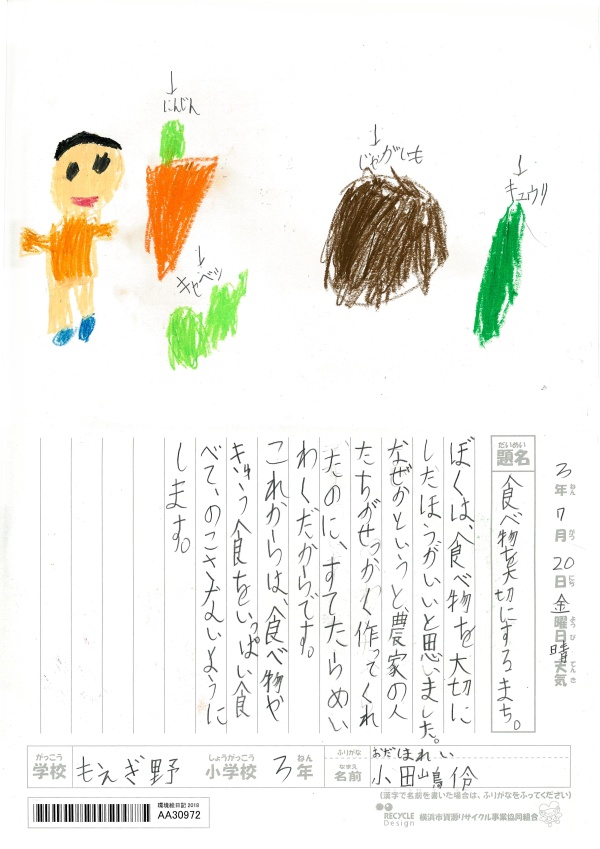 にんじん
じゃがいも
キュウリ
キャベツ
3年7月20日金曜日晴天気
ねん がつ にち ようび てんき
だいめい
題名
食べ物を大切にするまち。
ぼくは、食べ物を大切に
したほうがいいと思いました。
なぜかというと、農家の人
たちがせっかく作ってくれ
たのに、すてたらめい
わくだからです。
これからは、食べ物や
きゅう食をいっぱい食
べて、のこさないように
します。
がっこう しょうがっこう ねん
学校 もえぎ野 小学校 3年
ふりがな おだ れい
なまえ
名前 小田嶋 伶
(漢字で名前を書いた場合は、ふりがなをふってください)
環境絵日記2018
AA30972
RECYCLE Design
横浜市資源リサイクル事業協同組合